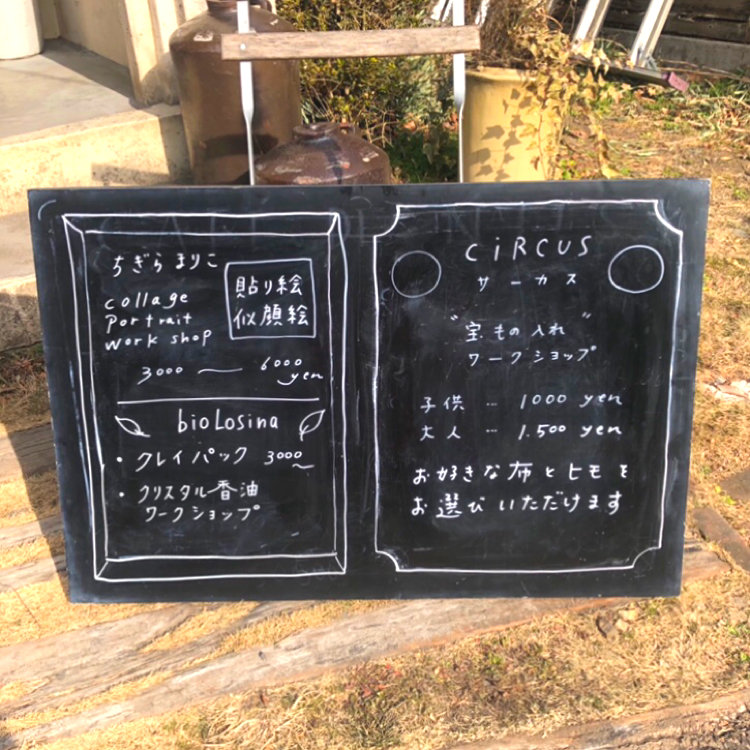 ちぎら まりこ
collage
portrait
work shop
貼り絵
似顔絵
3000 〜 6000 yen
bioLosina
・クレイパック 3000〜
・クリスタル香油
ワークショップ
CiRCUS
サーカス
"宝もの入れ"
ワークショップ
子供 … 1000 yen
大人 … 1.500 yen
お好きな布とヒモを
お選びいただけます